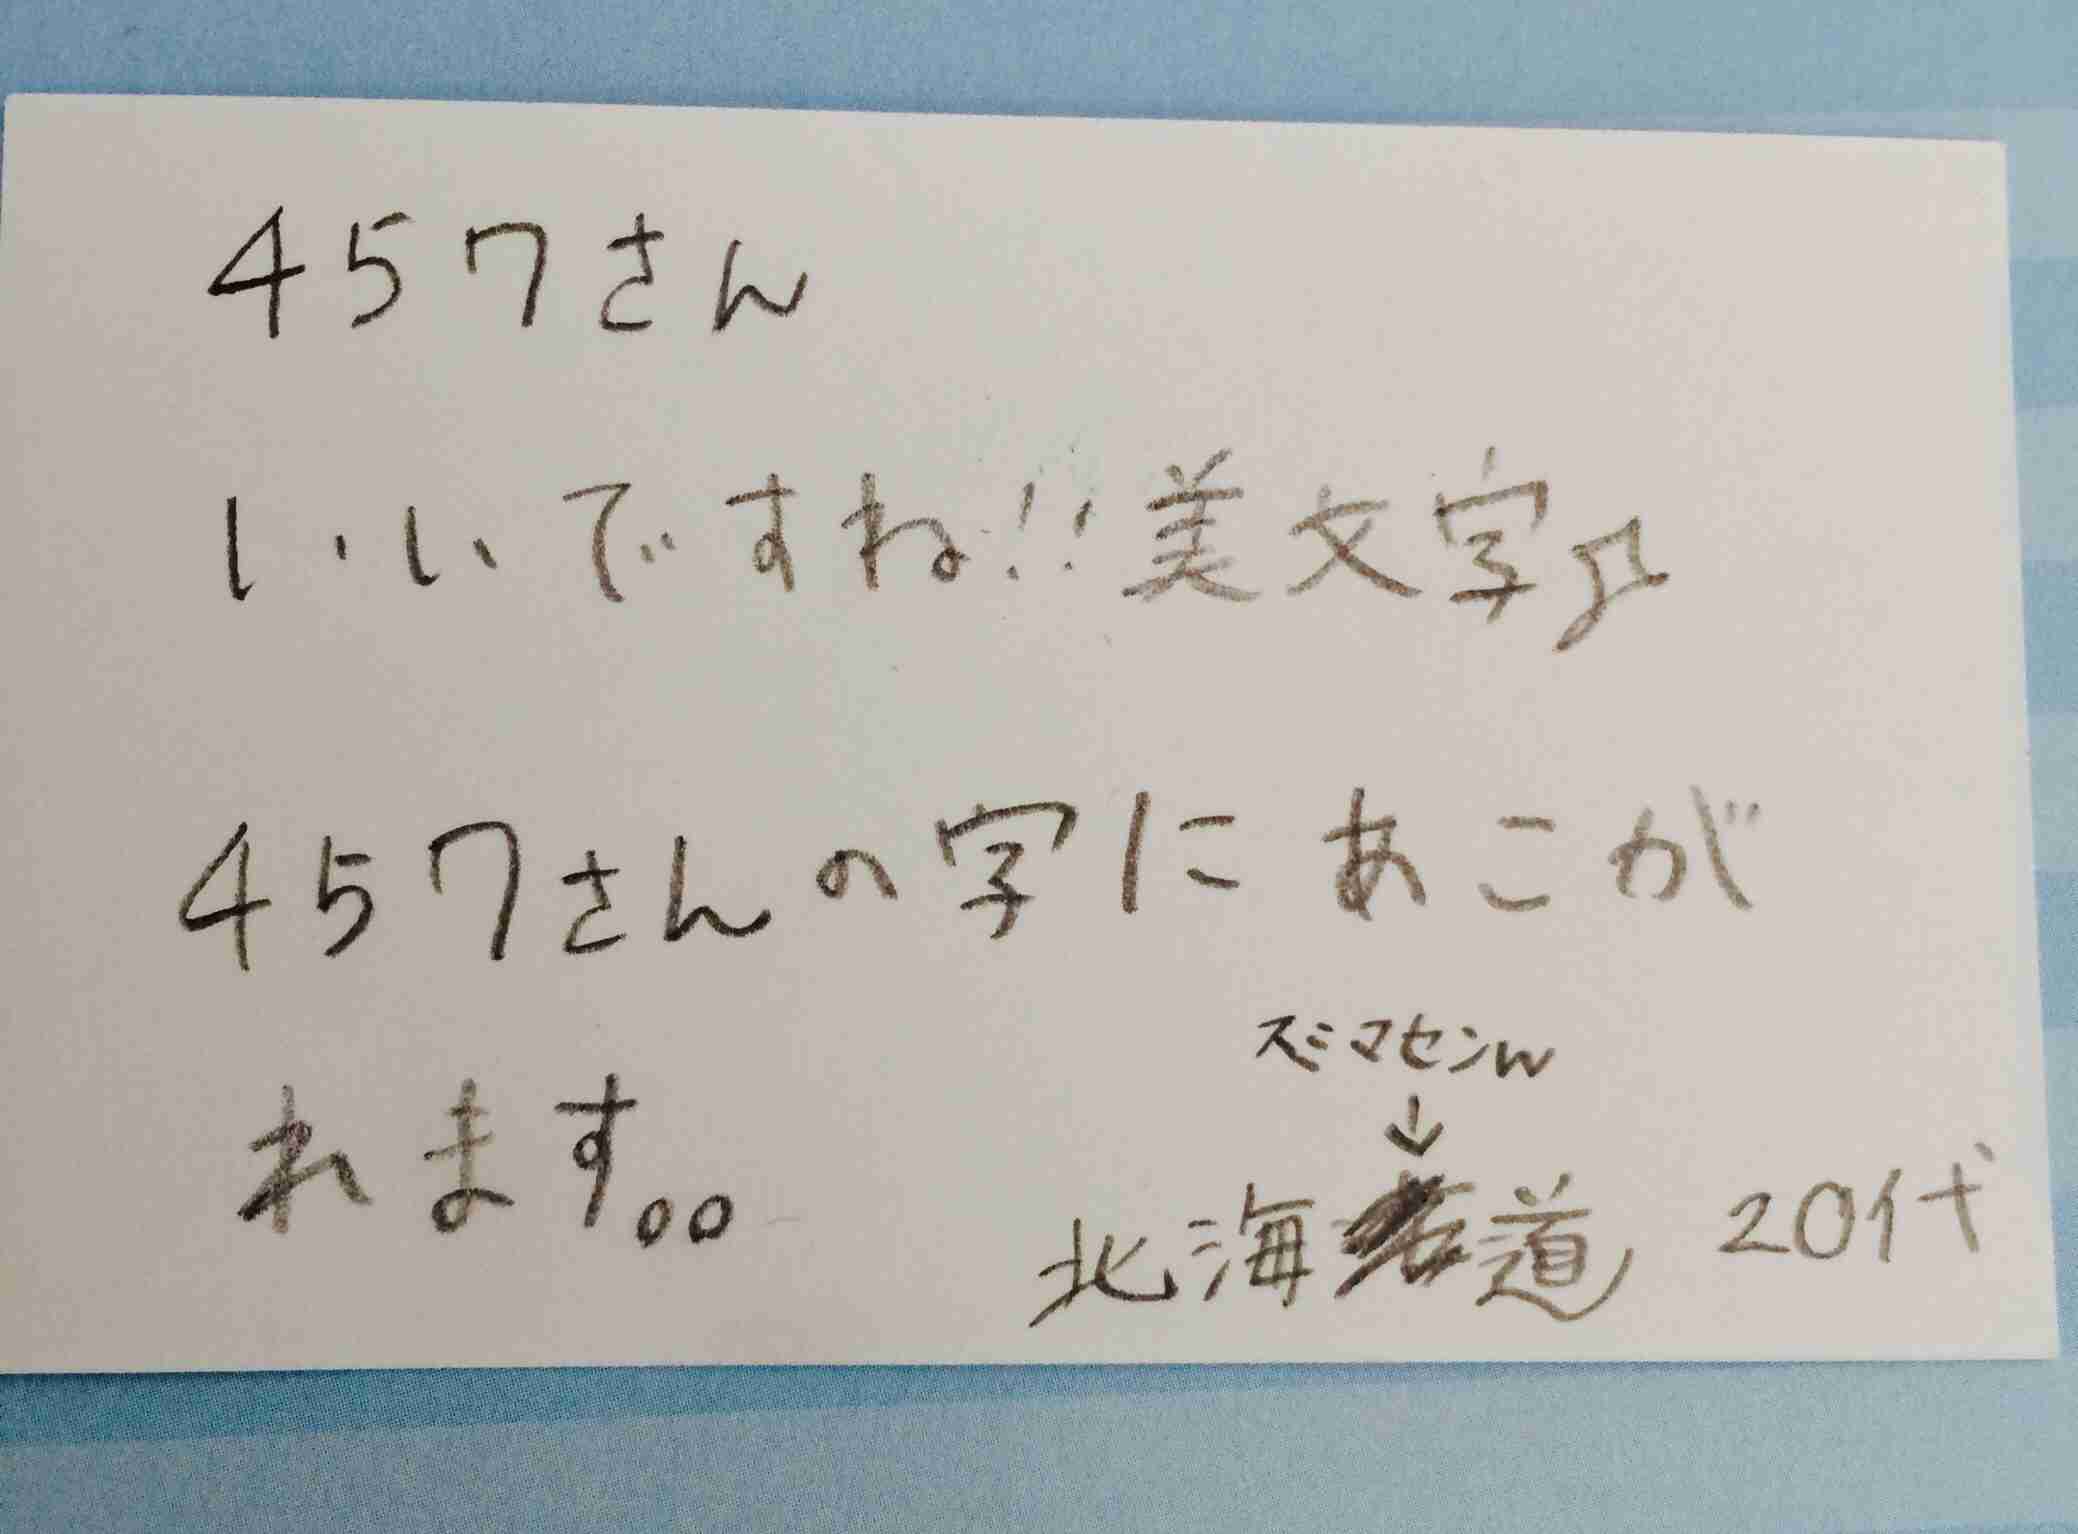 457さん
いいですね!!美文字♫
457さんの字にあこが
れます。。
スミマセンw
↓
北海道 20代